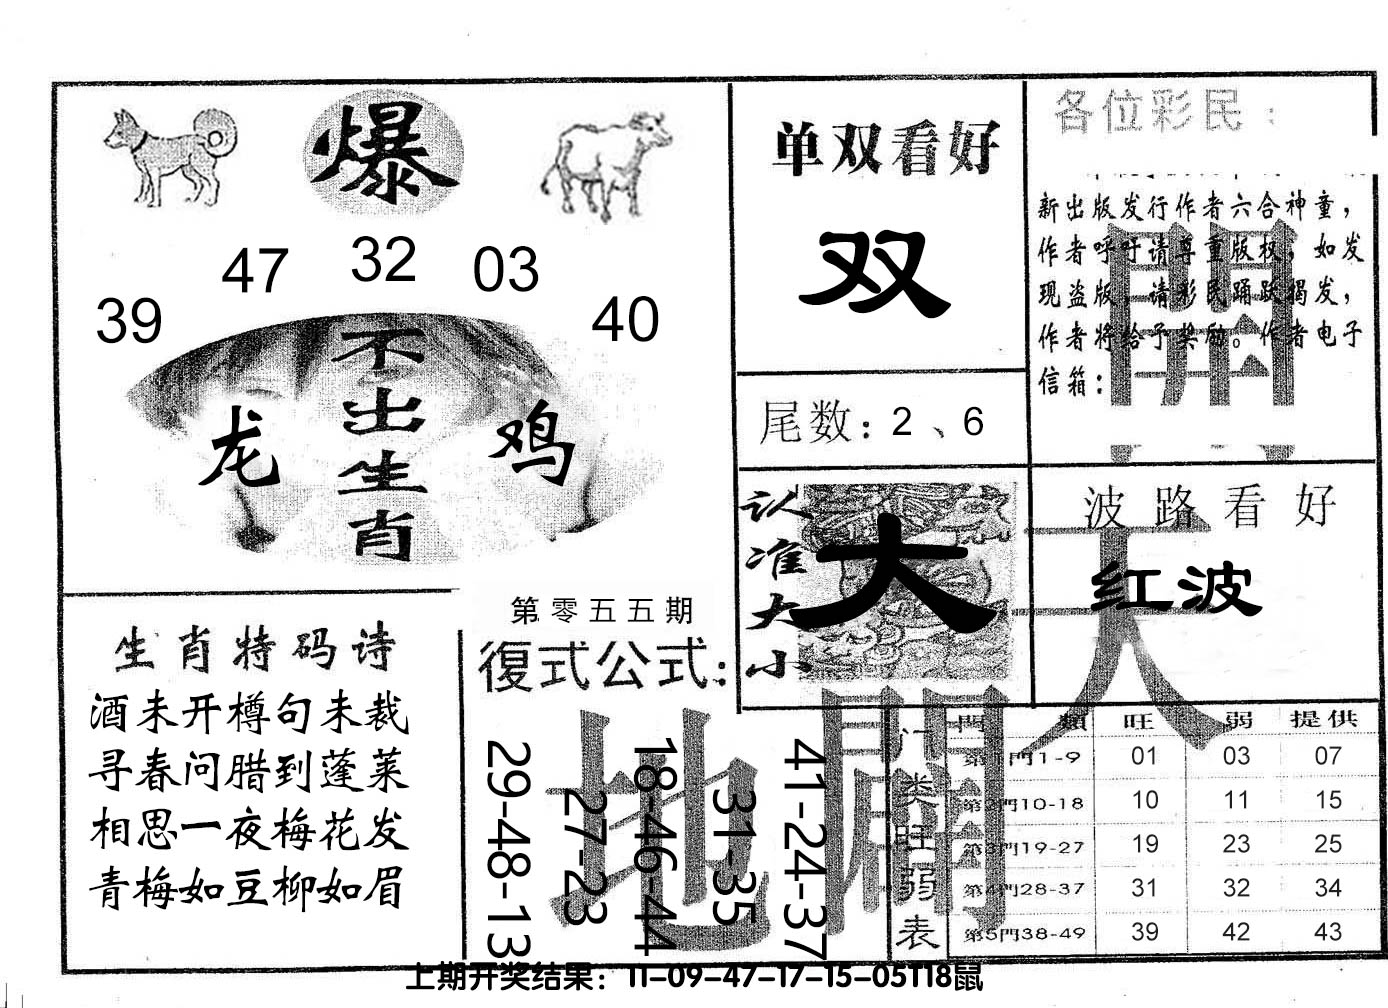 爆
39 47 32 03 40
不出生肖
龙 鸡
单双看好
双
尾数：2、6
各位彩民：
新出版发行作者六合神童，
作者呼吁请尊重版权，如发
现盗版，请彩民踊跃揭发，
作者将给予奖励。作者电子
信箱：
開
认准大小
大
波路看好
红波
天
生肖特码诗
酒未开樽句未裁
寻春问腊到蓬莱
相思一夜梅花发
青梅如豆柳如眉
第零五五期
復式公式：
29-48-13
27-23
18-46-44
31-35
41-24-37
地
開
门类旺弱表
門類 旺 弱 提供
第1門1-9 01 03 07
第2門10-18 10 11 15
第3門19-27 19 23 25
第4門28-37 31 32 34
第5門38-49 39 42 43
上期开奖结果：11-09-47-17-15-05T18鼠